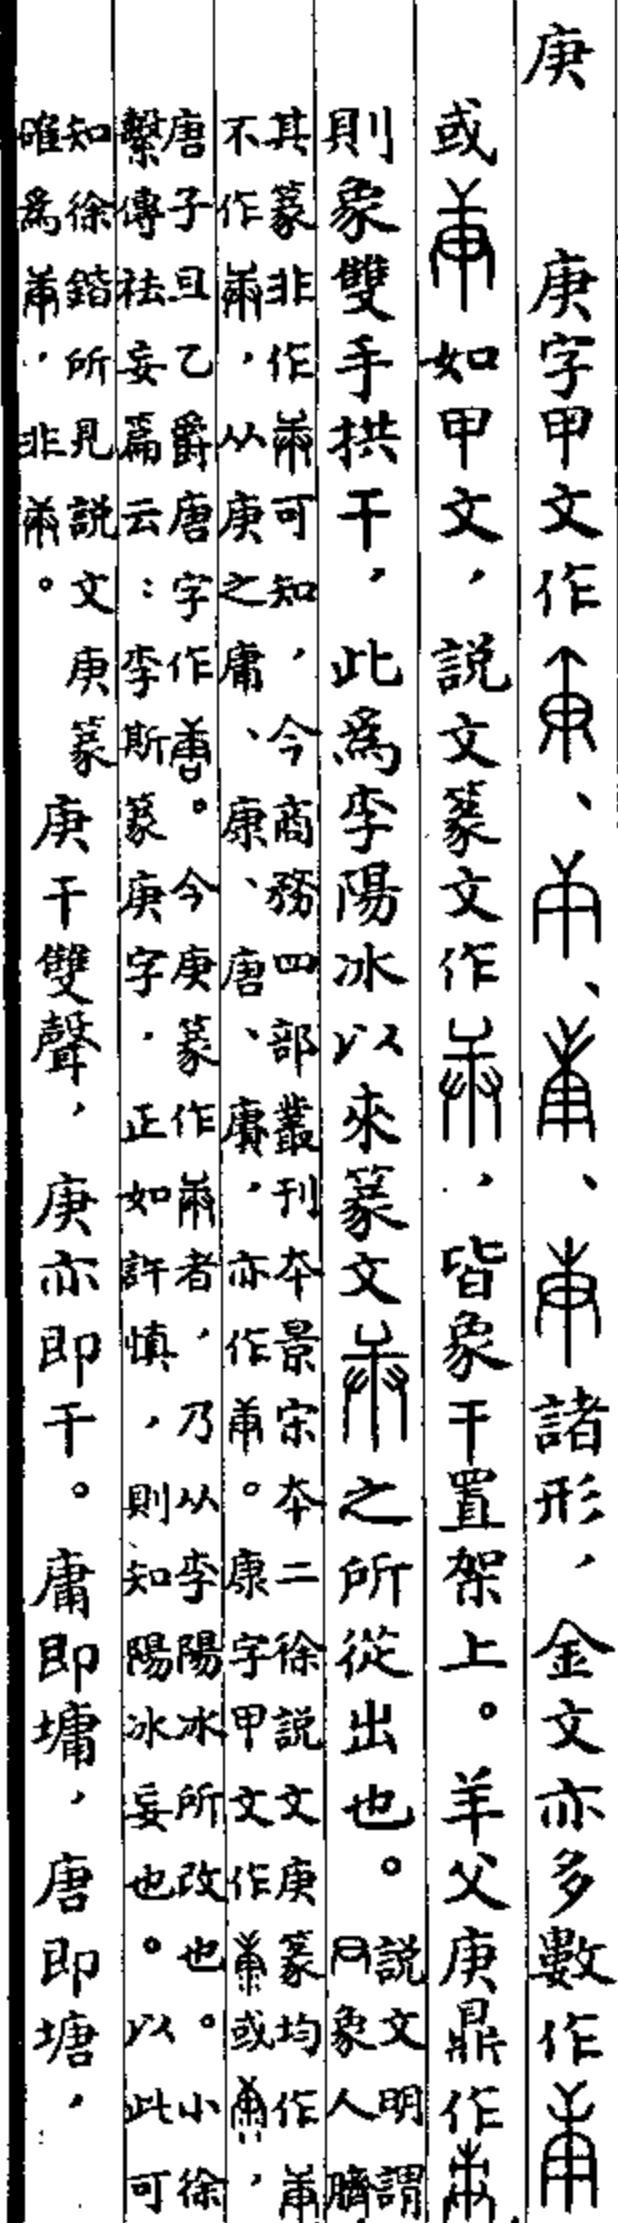 庚　庚字甲文作、、、諸形，金文亦多數作
或如甲文，說文篆文作，皆象干置架上。羊父庚鼎作
則象雙手拱干，此爲李陽冰以來篆文之所從出也。說文明謂象人臍
其篆非作可知，今商務四部叢刊本景宋本二徐說文庚篆均作
不作，从庚之庸、康、唐、賡，亦作。康字甲文作或，
唐子且乙爵唐字作。今庚篆作者，乃从李陽冰所改也。小徐
繫傳祛妄篇云：李斯篆庚字，正如許慎，則知陽冰妄也。以此可
知徐鍇所見說文庚篆
確爲，非。
庚干雙聲，庚亦即干。庸即墉，唐即塘，